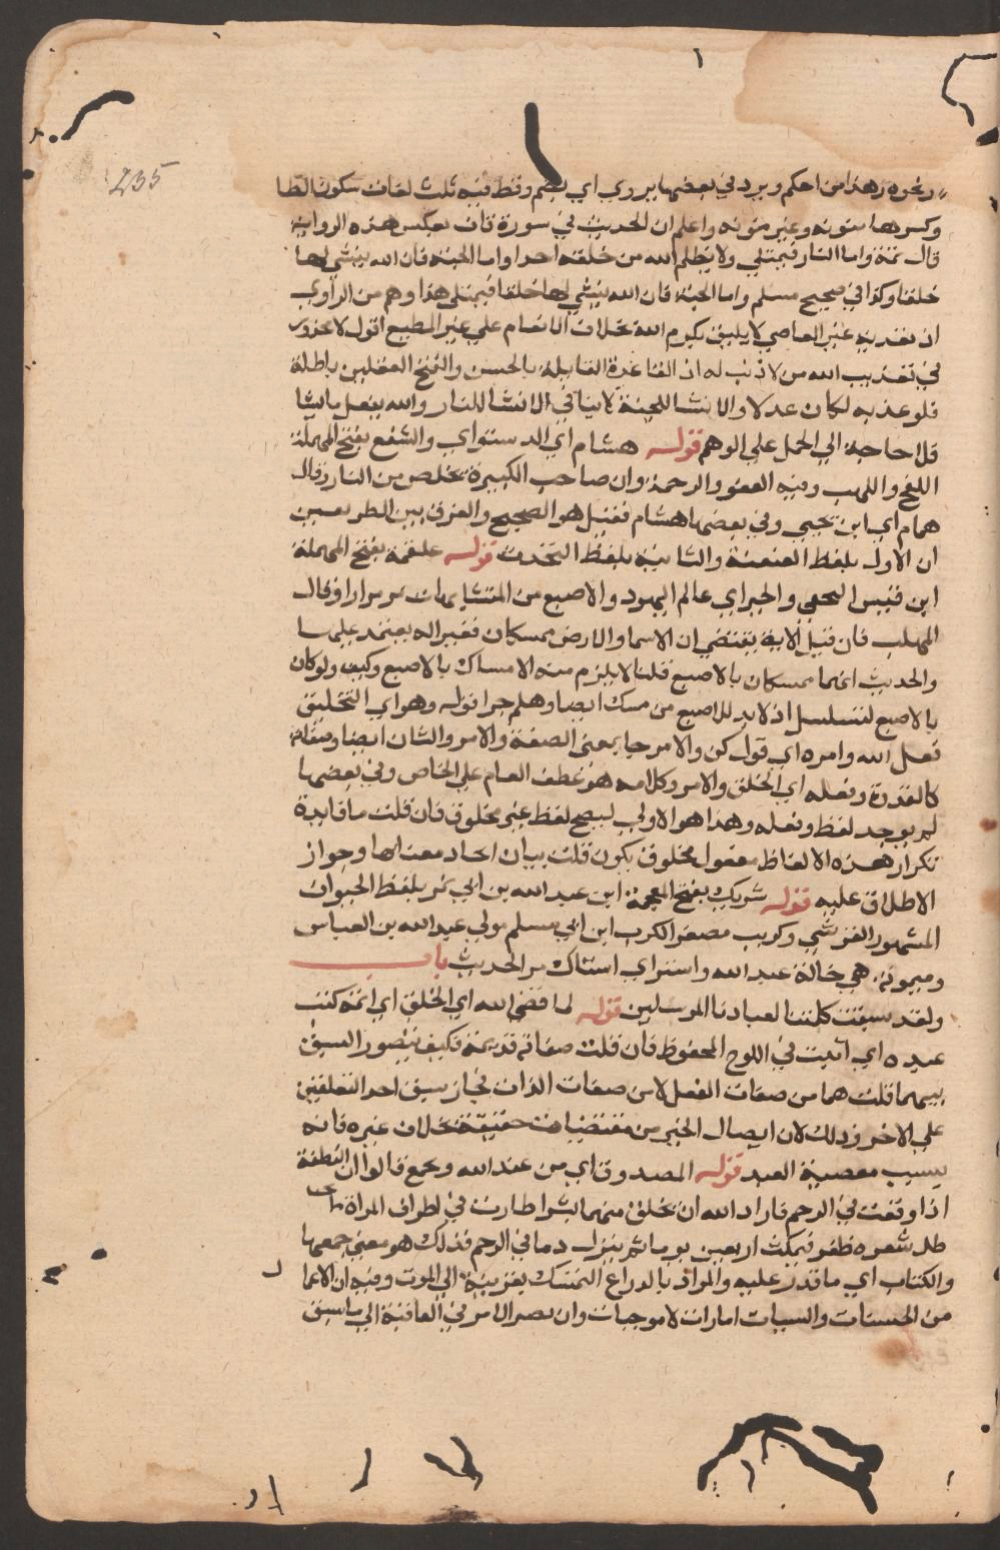 235
ونحوه وهذا من احكم ويرد في بعضها يزوي اي يضم وقط فيه ثلث لغات سكون الطا
وكسرها منونة وغير منونة واعلم ان الحديث في سورة قاف بعكس هذه الرواية
قال ثمة واما النار فتمتلي ولا يظلم الله من خلقه احدا واما الجنة فان الله ينشي لها
خلقا وكذا في صحيح مسلم واما الجنة فان الله ينشي لها خلقا فقيل هذا وهم من الراوي
ان تعذيب غير العاصي لا يليق بكرم الله بخلاف الانعام علي غير المطيع اقول لا محذور
في تعذيب الله من لا ذنب له اذ القاعدة القايلة بالحسن والقبح العقليين باطلة
فلو عذبه لكان عدلا والانشا للجنة لا ينافي الانشا للنار والله يفعل ما يشا
فلا حاجة الي الحمل علي الوهم قوله هشام اي الدستواي والسفع بفتح المهملة
اللفح واللهب وفيه العفو والرحمة وان صاحب الكبيرة يخلص من النار وقال
همام اي ابن يحيي وفي بعضها هشام فقيل هو الصحيح والفرق بين الطريقين
ان الاول بلفظ العنعنة والثانية بلفظ التحدث قوله علقمة بفتح المهملة
ابن قيس النخعي والحبر اي عالم اليهود والاصبع من المتشابهات مر مرارا وقال
المهلب فان قيل الاية يقتضي ان السما والارض ممسكان فغير اله يعتمد عليها
والحديث انهما ممسكان بالاصبع قلنا لا يلزم منه الامساك بالاصبع وكيف ولو كان
بالاصبع لتسلسل اذ لابد للاصبع من مسك ايضا وهلم جرا قوله وهو اي التخليق
فعل الله وامره اي قول كن والامر جا بمعني الصفة والامر والشان ايضا وصفاته
كالقدرة وفعله اي الخلق والامر وكلامه هو عطف العام علي الخاص وفي بعضها
لم يوجد لفظ وفعله وهذا هو الاولي ليصح لفظ غير مخلوق فان قلت ما فايدة
تكرار هذه الالفاظ مفعول مخلوق يكون قلت بيان اتحاد معناها وجواز
الاطلاق عليه قوله شريك بفتح المعجمة ابن عبد الله بن ابي نمر بلفظ الحيوان
المشهور القرشي وكريب مصغر الكرب ابن ابي مسلم مولي عبد الله بن العباس
وميمونة هي خالة عبد الله واستن اي استاك مر الحديث باب
ولقد سبقت كلمتنا لعبادنا المرسلين قوله لما قضي الله اي الخلق اي اتمه كتب
عنده اي اثبت في اللوح المحفوظ فان قلت صفاته قديمة فكيف يتصور السبق
بينهما قلت هما من صفات الفعل لا من صفات الذات فجاز سبق احد التعلقين
علي الاخر وذلك لان ايصال الخير من مقتضيات حقيقته بخلاف غيره فانه
بسبب معصية العبد قوله المصدوق اي من عند الله ويجمع قالوا ان النطفة
اذا وقعت في الرحم فاراد الله ان يخلق منها بشرا طارت في اطراف المراة تحت
كل شعره وظفر فيمكث اربعين يوما ثم ينزل دما في الرحم فذلك هو معني جمعها
والكتاب اي ما قدر عليه والمراد بالذراع التمسك بقربية الي الموت وفيه ان الاعما
ل
من الحسنات والسيات امارات لا موجبات وان مصير الامر في العاقبة الي ما سبق